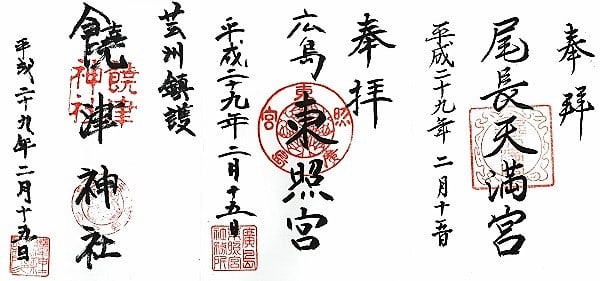 奉拝
尾長天満宮
平成二十九年 二月十五日
奉拝
広島東照宮
平成二十九年二月十五日
東照宮
廣島
廣島
東照宮
社務所
芸州鎮護
饒津神社
饒津
神社
平成二十九年二月十五日